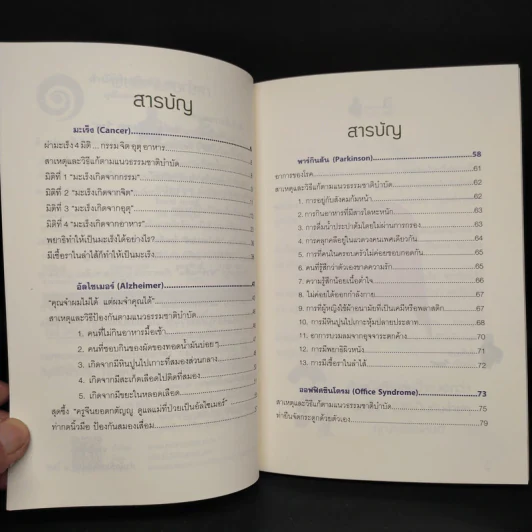 สารบัญ
มะเร็ง (Cancer)
ผ่ามะเร็ง 4 มิติ ... กรรม จิต อุตุ อาหาร
สาเหตุและวิธีแก้ตามแนวธรรมชาติบำบัด
มิติที่ 1 "มะเร็งเกิดจากกรรม"
มิติที่ 2 "มะเร็งเกิดจากจิต"
มิติที่ 3 "มะเร็งเกิดจากอุตุ"
มิติที่ 4 "มะเร็งเกิดจากอาหาร"
พยาธิทำให้เป็นมะเร็งได้อย่างไร?
มีเชื้อราในลำไส้ก็ทำให้เป็นมะเร็ง
อัลไซเมอร์ (Alzheimer)
"คุณจำผมไม่ได้ แต่ผมจำคุณได้"
สาเหตุและวิธีป้องกันตามแนวธรรมชาติบำบัด
1. คนที่ไม่กินอาหารมื้อเช้า
2. คนที่ชอบกินของผัดของทอดน้ำมันบ่อยๆ
3. เกิดจากมีหินปูนไปเกาะที่สมองส่วนกลาง
4. เกิดจากมีสะเก็ดเลือดไปติดที่สมอง
5. เกิดจากมีไขมันในหลอดเลือด
สุดซึ้ง "ครูจีนยอดกตัญญู ดูแลแม่ที่ป่วยเป็นอัลไซเมอร์"
ท่ากดนิ้วมือ ป้องกันสมองเสื่อม
สารบัญ
พาร์กินสัน (Parkinson) 58
อาการของโรค 61
สาเหตุและวิธีแก้ตามแนวธรรมชาติบำบัด 62
1. การอยู่กับสังคมก้มหน้า 62
2. การกินอาหารที่มีสารโลหะหนัก 62
3. การดื่มน้ำประปาต้มโดยไม่ผ่านการกรอง 63
4. การคลุกคลีอยู่ในแวดวงคนเพศเดียวกัน 64
5. การที่คนในครอบครัวไม่ค่อยชอบกอดกัน 64
6. คนที่รู้สึกว่าตัวเองขาดความรัก 65
7. ความรู้สึกน้อยเนื้อต่ำใจ 65
8. ไม่ค่อยได้ออกกำลังกาย 66
9. การที่ผู้หญิงใช้ผ้าอนามัยที่เป็นเคมีหรือพลาสติก 67
10. การมีหินปูนไปเกาะหุ้มปลายประสาท 68
11. อาการบวมลมจากอุจจาระตกค้าง 70
12. การมีพยาธิผิวหนัง 71
13. การมีเชื้อราในลำไส้ 72
ออฟฟิศซินโดรม (Office Syndrome) 73
สาเหตุและวิธีแก้ตามแนวธรรมชาติบำบัด 75
ท่ายืนจัดกระดูกด้วยตัวเอง 79